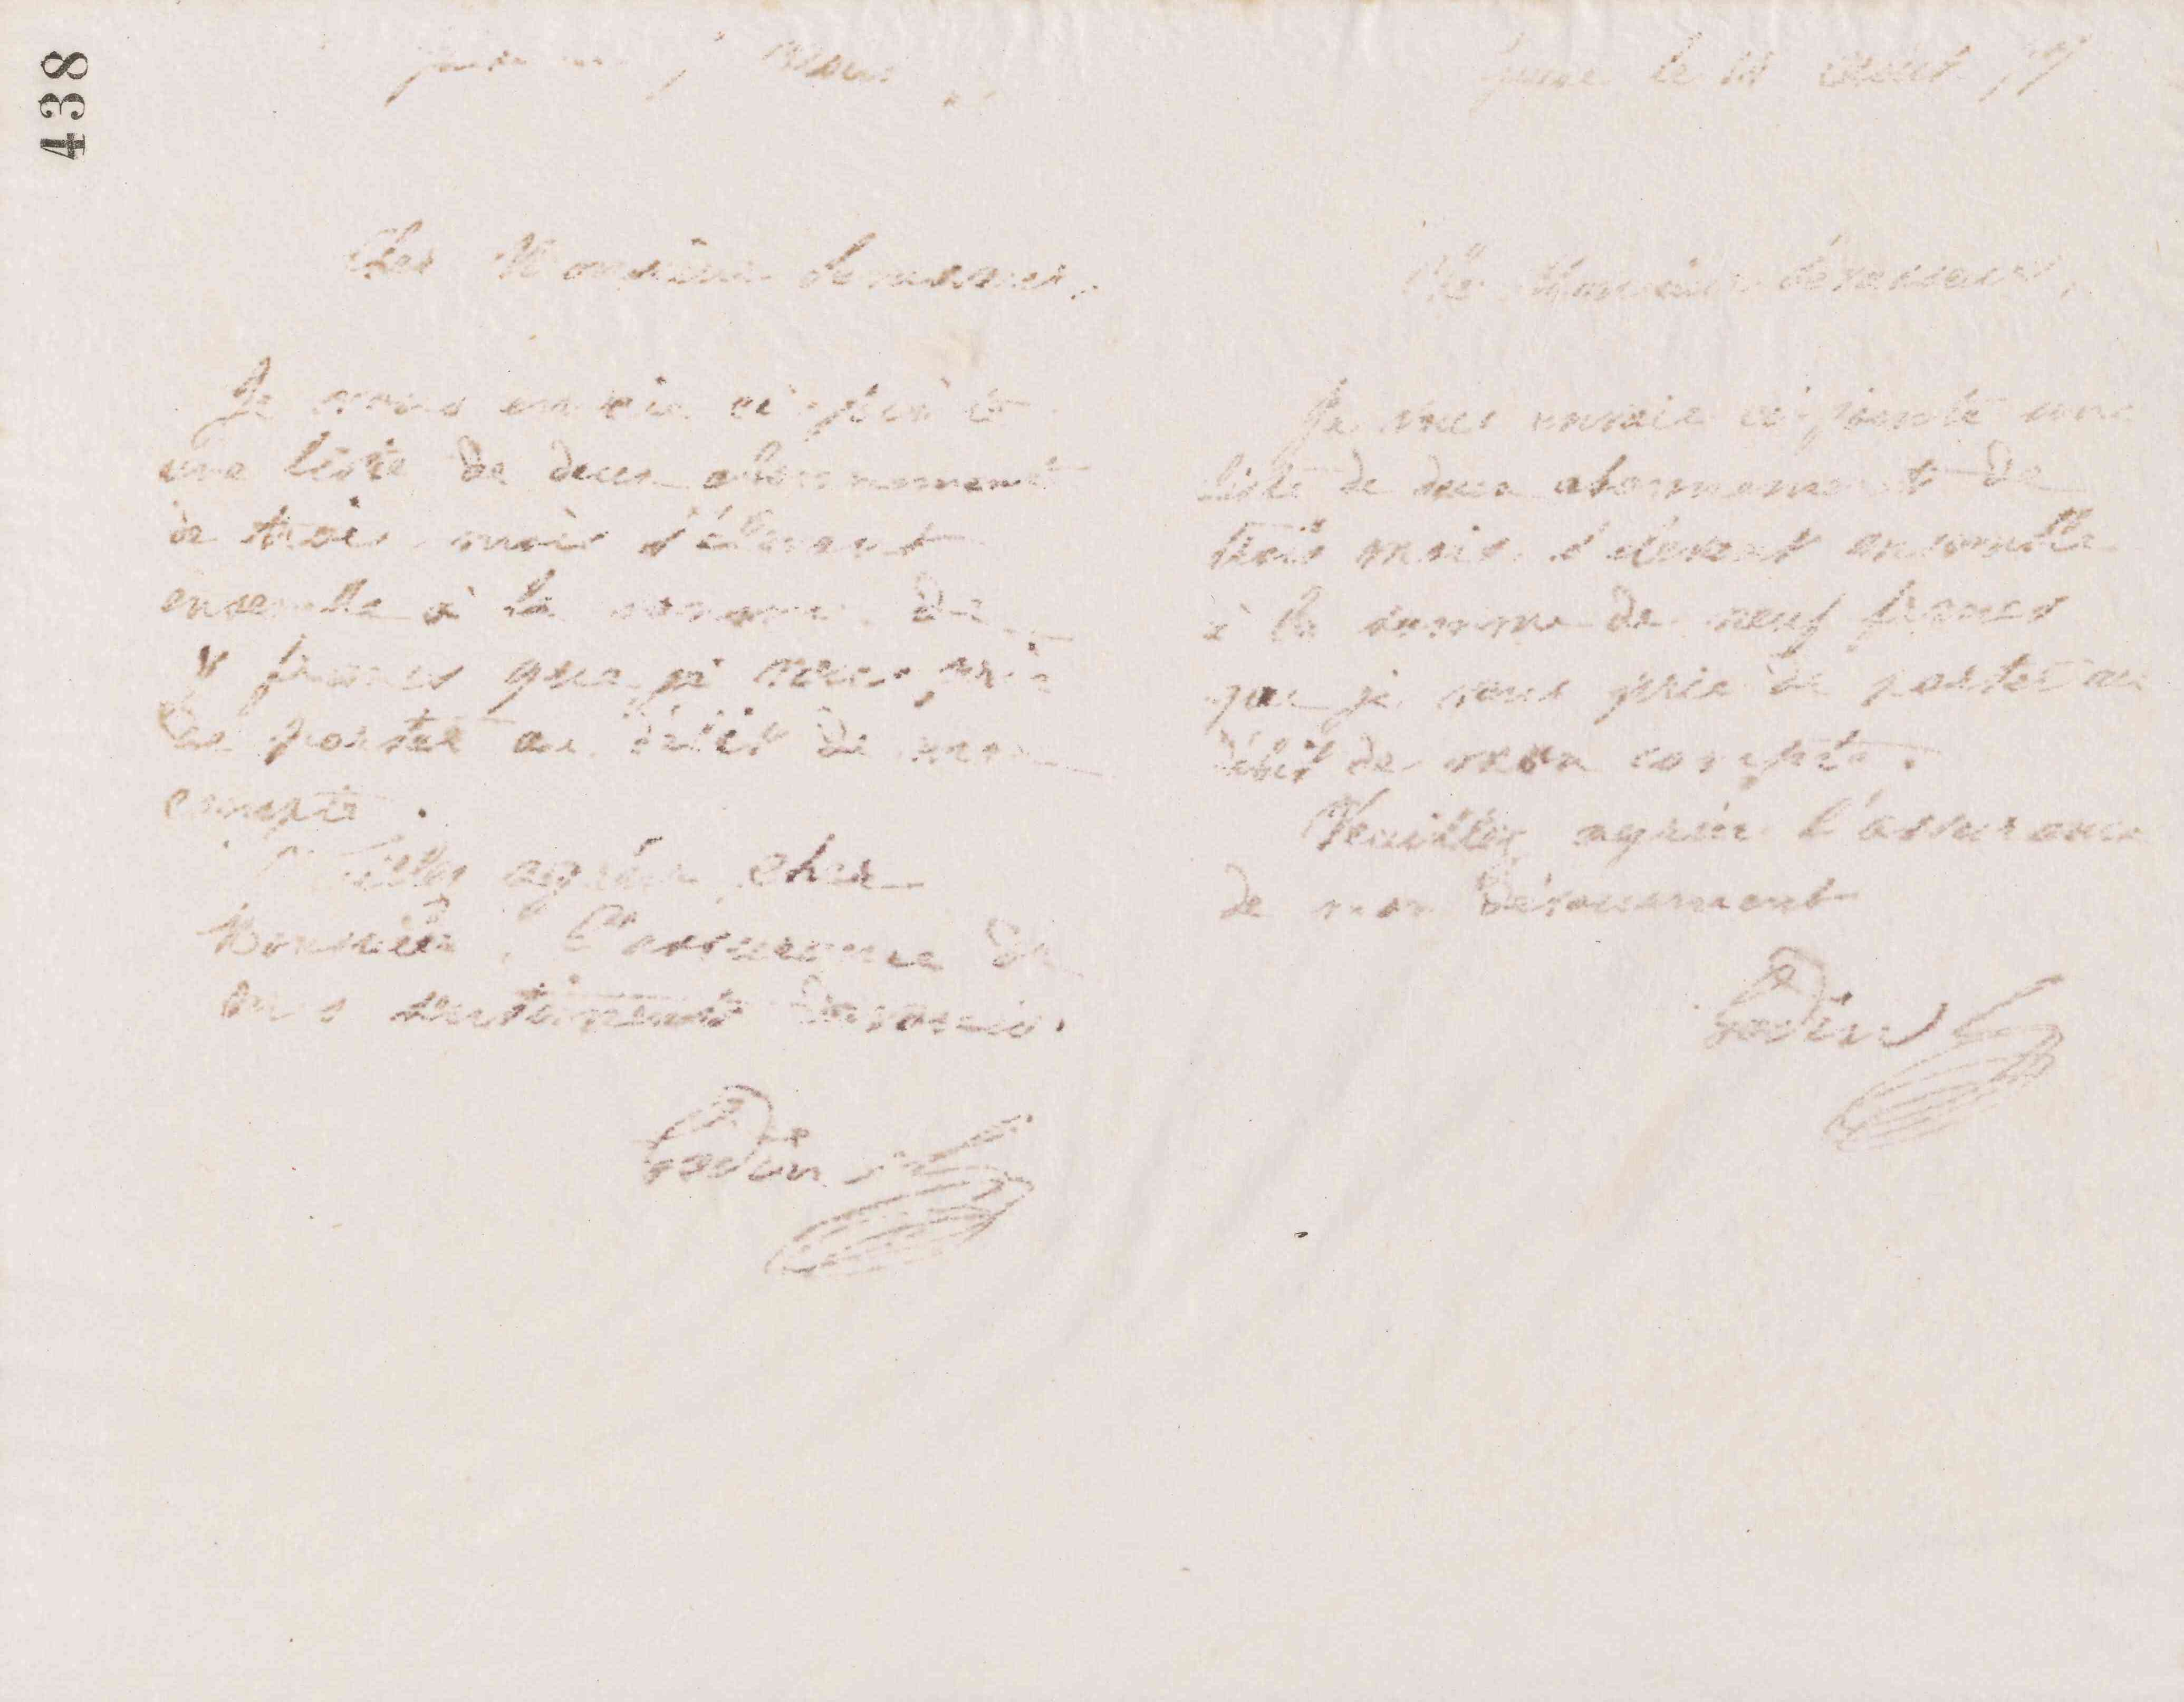 438
Cher Monsieur
Je vous envoie ci-joint
une liste de deux abonnement
de trois mois s'élevant
ensemble à la somme de
francs que je vous prie
de porter au débit de mon
compte.
agréer, cher
Monsieur, l'assurance de
mes sentiments dévoués.
Godin
Guise le Août
Monsieur
Je vous envoie ci-jointe une
liste de deux abonnement de
trois mois s'élevant ensemble
à la somme de neuf francs
que je vous prie de porter au
débit de mon compte.
Veuillez agréer l'assurance
de mon dévouement
Godin